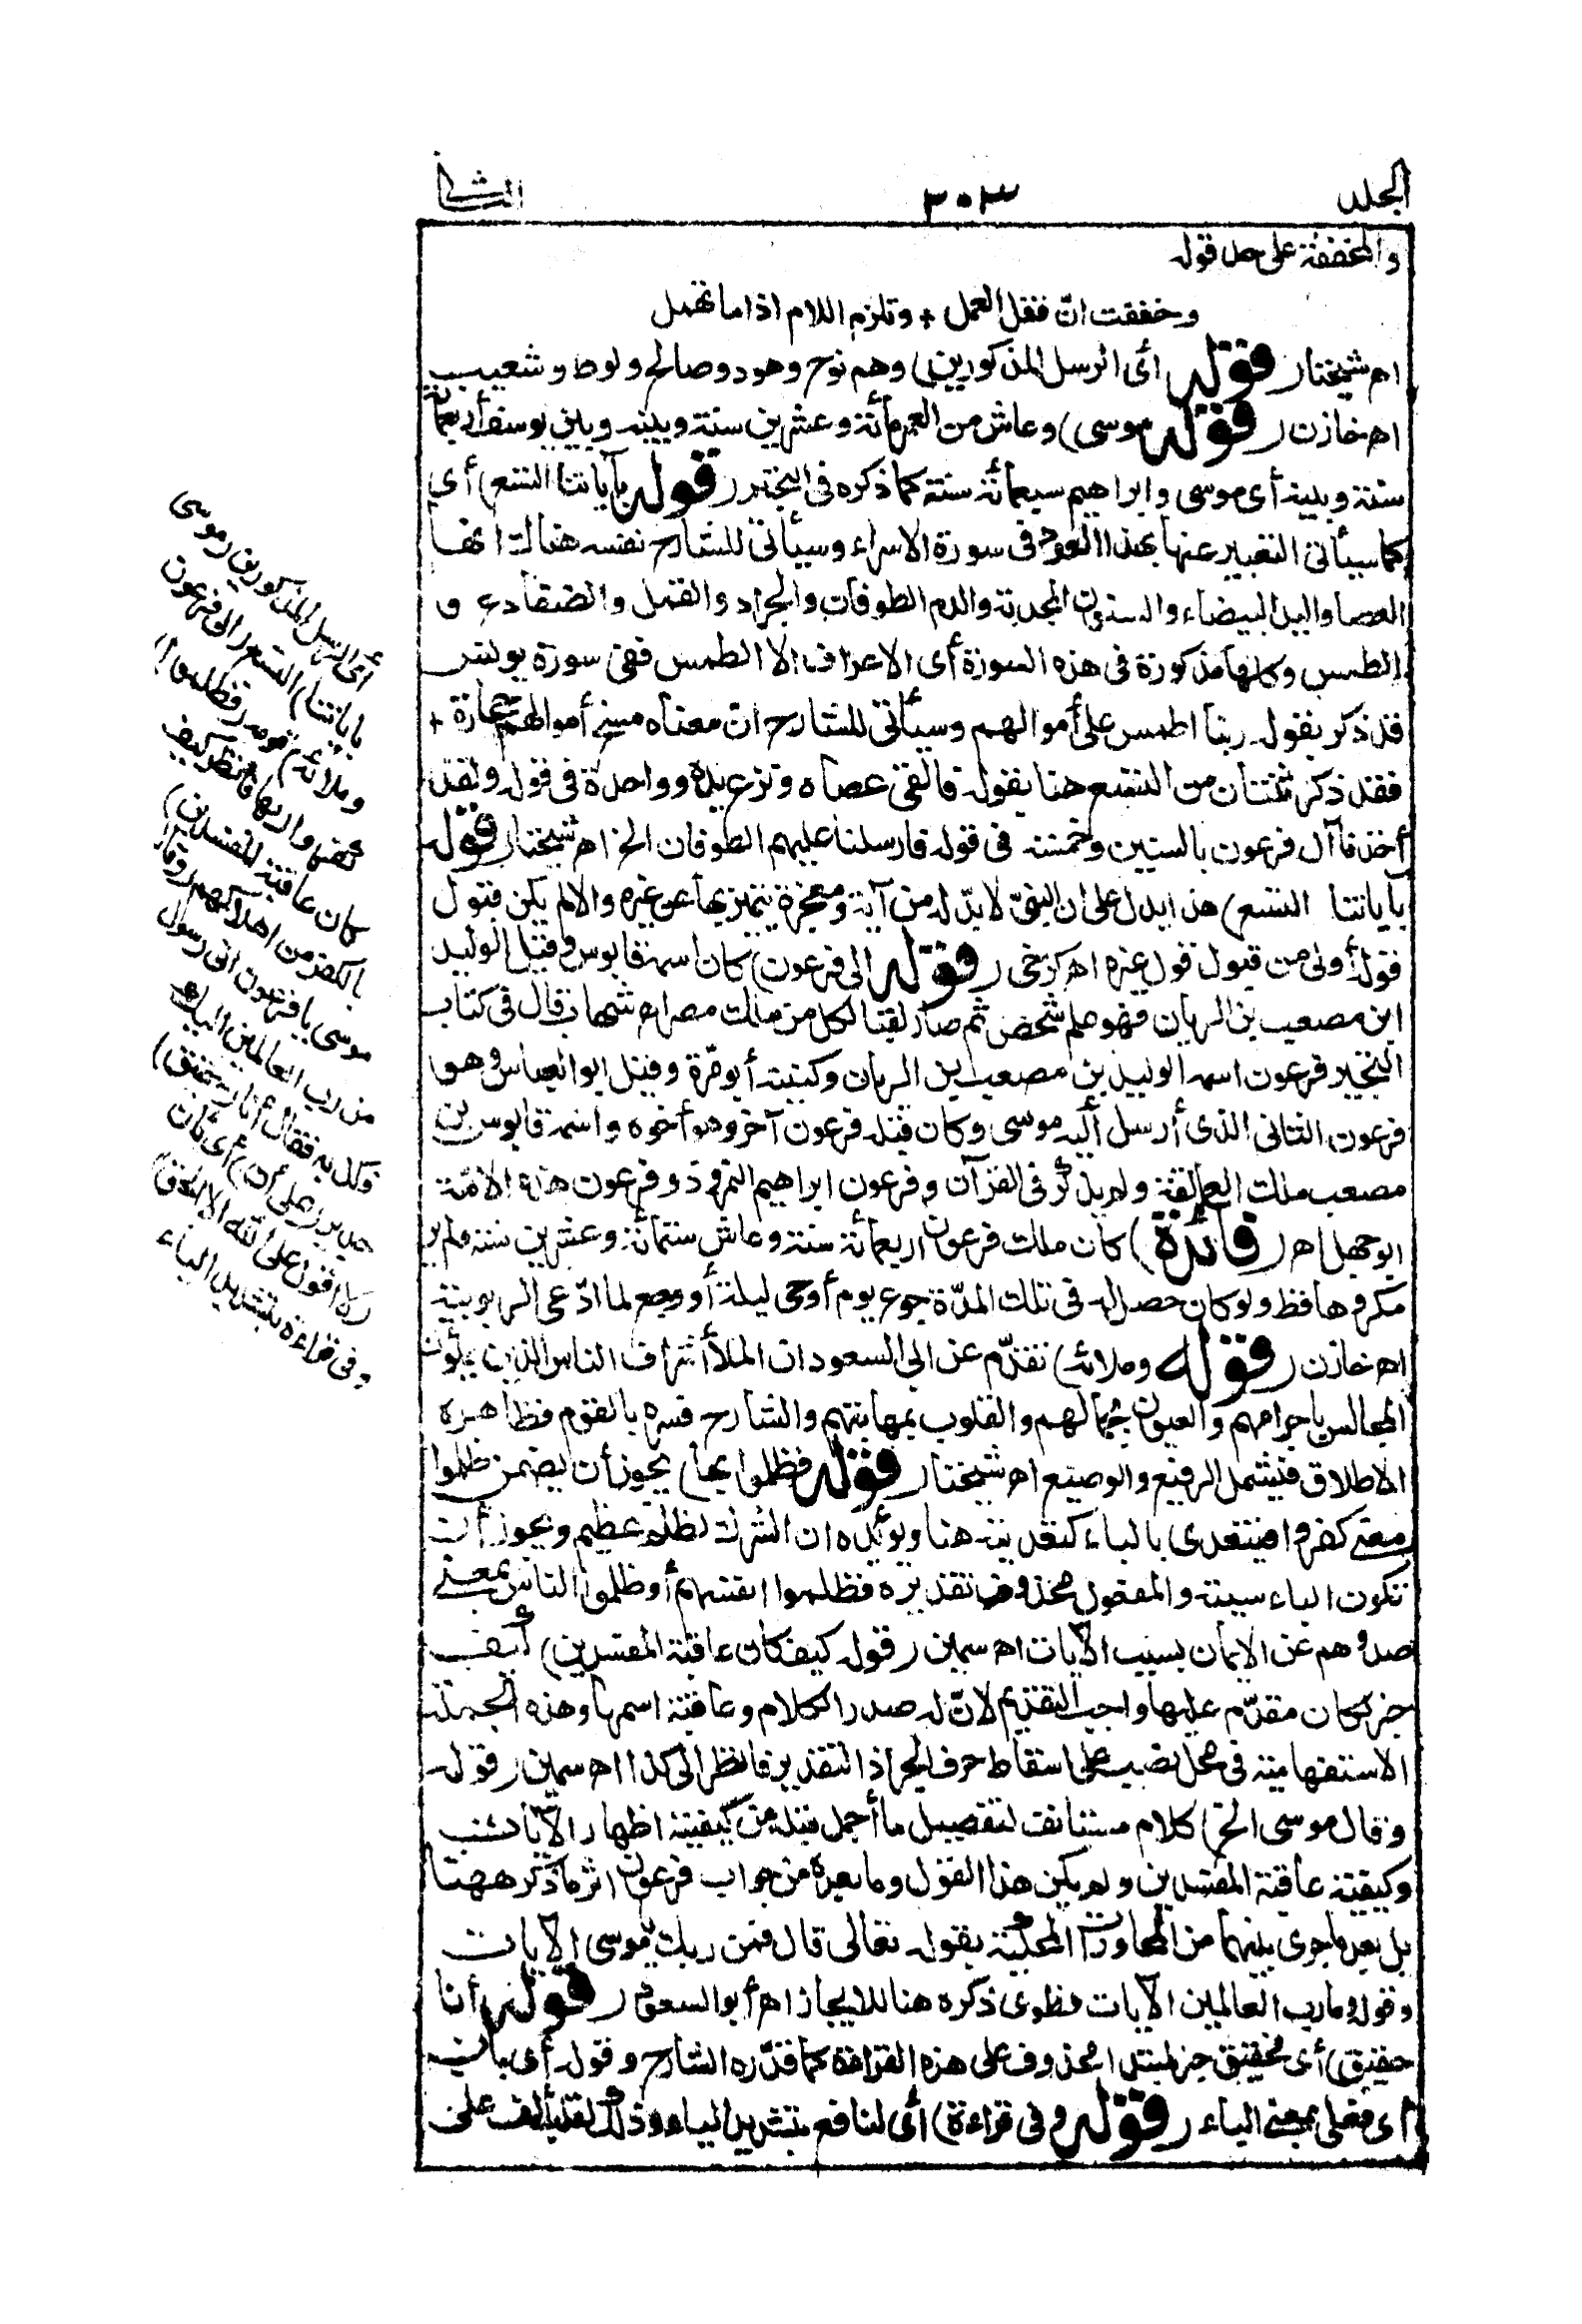 الجلد ٣٠٣ الثاني
والمخففة على حل قوله
وخففت انّ فقل العمل + وتلزم اللام اذا ما تهمل
اه شيخنا (قوله أى الرسل المذكورين) وهم نوح وهود وصالح ولوط وشعيب
اه خازن (قوله موسى) وعاش من العمر مائة وعشرين سنة وبينه وبين يوسف أربعمائة
سنة وبينه أى موسى وابراهيم سبعمائة سنة كما ذكره فى التحبير (قوله بآياتنا التسع) أى
كما سيأتى التعبير عنها بهذا العدد فى سورة الاسراء وسيأتى للشارح نفسه هناك انها
العصا واليد البيضاء والسنون المجدبة والدم الطوفان والجراد والقمل والضفادع و
الطمس وكلها مذكورة فى هذه السورة أى الاعراف الا الطمس ففى سورة يونس
قد ذكر بقوله ربنا اطمس على أموالهم وسيأتى للشارح ان معناه مسخ أموالهم حجارة +
فقد ذكر ثنتان من التسع هنا بقوله فألقى عصاه ونزع يده وواحدة فى قوله ولقد
أخذنا آل فرعون بالسنين وخمسة فى قوله فارسلنا عليهم الطوفان الخ اه شيخنا (قوله
بآياتنا التسع) هذا يدل على ان النبىّ لا بدّ له من آية ومعجزة يتميز بها عن غيره والا لم يكن قبول
قوله أولى من قبول قول غيره اه كرخى (قوله الى فرعون) كان اسمه قابوس وقيل الوليد
ابن مصعب بن الريان فهو علم شخص ثم صار لقبا لكل من ملك مصر اه شهاب قال فى كتاب
التحبير فرعون اسمه الوليد بن مصعب بن الريان وكنيته أبو مرّة وقيل ابو العباس وهو
فرعون الثانى الذى أرسل اليه موسى وكان قبله فرعون آخر وهو أخوه واسمه قابوس بن
مصعب ملك العمالقة ولم يذكر فى القرآن وفرعون ابراهيم النمروذ وفرعون هذه الامّة
ابو جهل اه (فائدة) كان ملك فرعون اربعمائة سنة وعاش ستمائة وعشرين سنة ولم ير
مكروها قط ولو كان حصل له فى تلك المدّة جوع يوم أو حمى ليلة أو وجع لما ادّعى الربوبية
اه خازن (قوله وملائه) تقدّم عن ابى السعود ان الملأ أشراف الناس الذين يملؤن
المجالس باجرامهم والعيون بجمالهم والقلوب بمهابتهم والشارح فسره بالقوم فظاهره
الاطلاق فيشمل الرفيع والوضيع اه شيخنا (قوله فظلموا بها) يجوز أن يضمن ظلموا
معنى كفروا فيتعدى بالباء كتعديته هنا ويؤيده ان الشرك لظلم عظيم ويجوز أن
تكون الباء سببية والمفعول محذوف تقديره فظلموا انفسهم أو ظلموا الناس بمعنى
صدوهم عن الايمان بسبب الآيات اه سمين (قوله كيف كان عاقبة المفسدين) كيف
خبر كان مقدّم عليها واجب التقديم لانّ له صدر الكلام وعاقبة اسمها وهذه الجملة
الاستفهامية فى محل نصب على اسقاط حرف الجر اذ التقدير فانظر الى كذا اه سمين (قوله
وقال موسى الخ) كلام مستأنف لتفصيل ما أجمل قبله من كيفية اظهار الآيات
وكيفية عاقبة المفسدين ولم يكن هذا القول وما بعده من جواب فرعون اثر ما ذكر ههنا
بل بعد ما جرى بينهما من المحاورات المحكية بقوله تعالى قال فمن ربك يا موسى الآيات
وقوله وما رب العالمين الآيات فطوى ذكره هنا للايجاز اه أبو السعود (قوله أنا
حقيق) أى فحقيق خبر لمبتدا محذوف على هذه القراءة كما قدّره الشارح وقوله أى بأن
أى فعلى بمعنى الباء (قوله وفى قراءة) أى لنافع بتشديد الياء وذلك لقلب ألف على
أى الرسل المذكورين (موسى
بآياتنا) التسع (الى فرعون
وملائه) قومه (فظلموا)
كفروا (بها فانظر كيف
كان عاقبة المفسدين)
بالكفر من اهلاكهم (وقال
موسى يا فرعون انى رسول
من رب العالمين) اليك
فكذبه فقال أنا (حقيق)
جدير (على أن) أى بأن
(لا اقول على الله الا الحق)
وفى قراءة بتشديد الياء